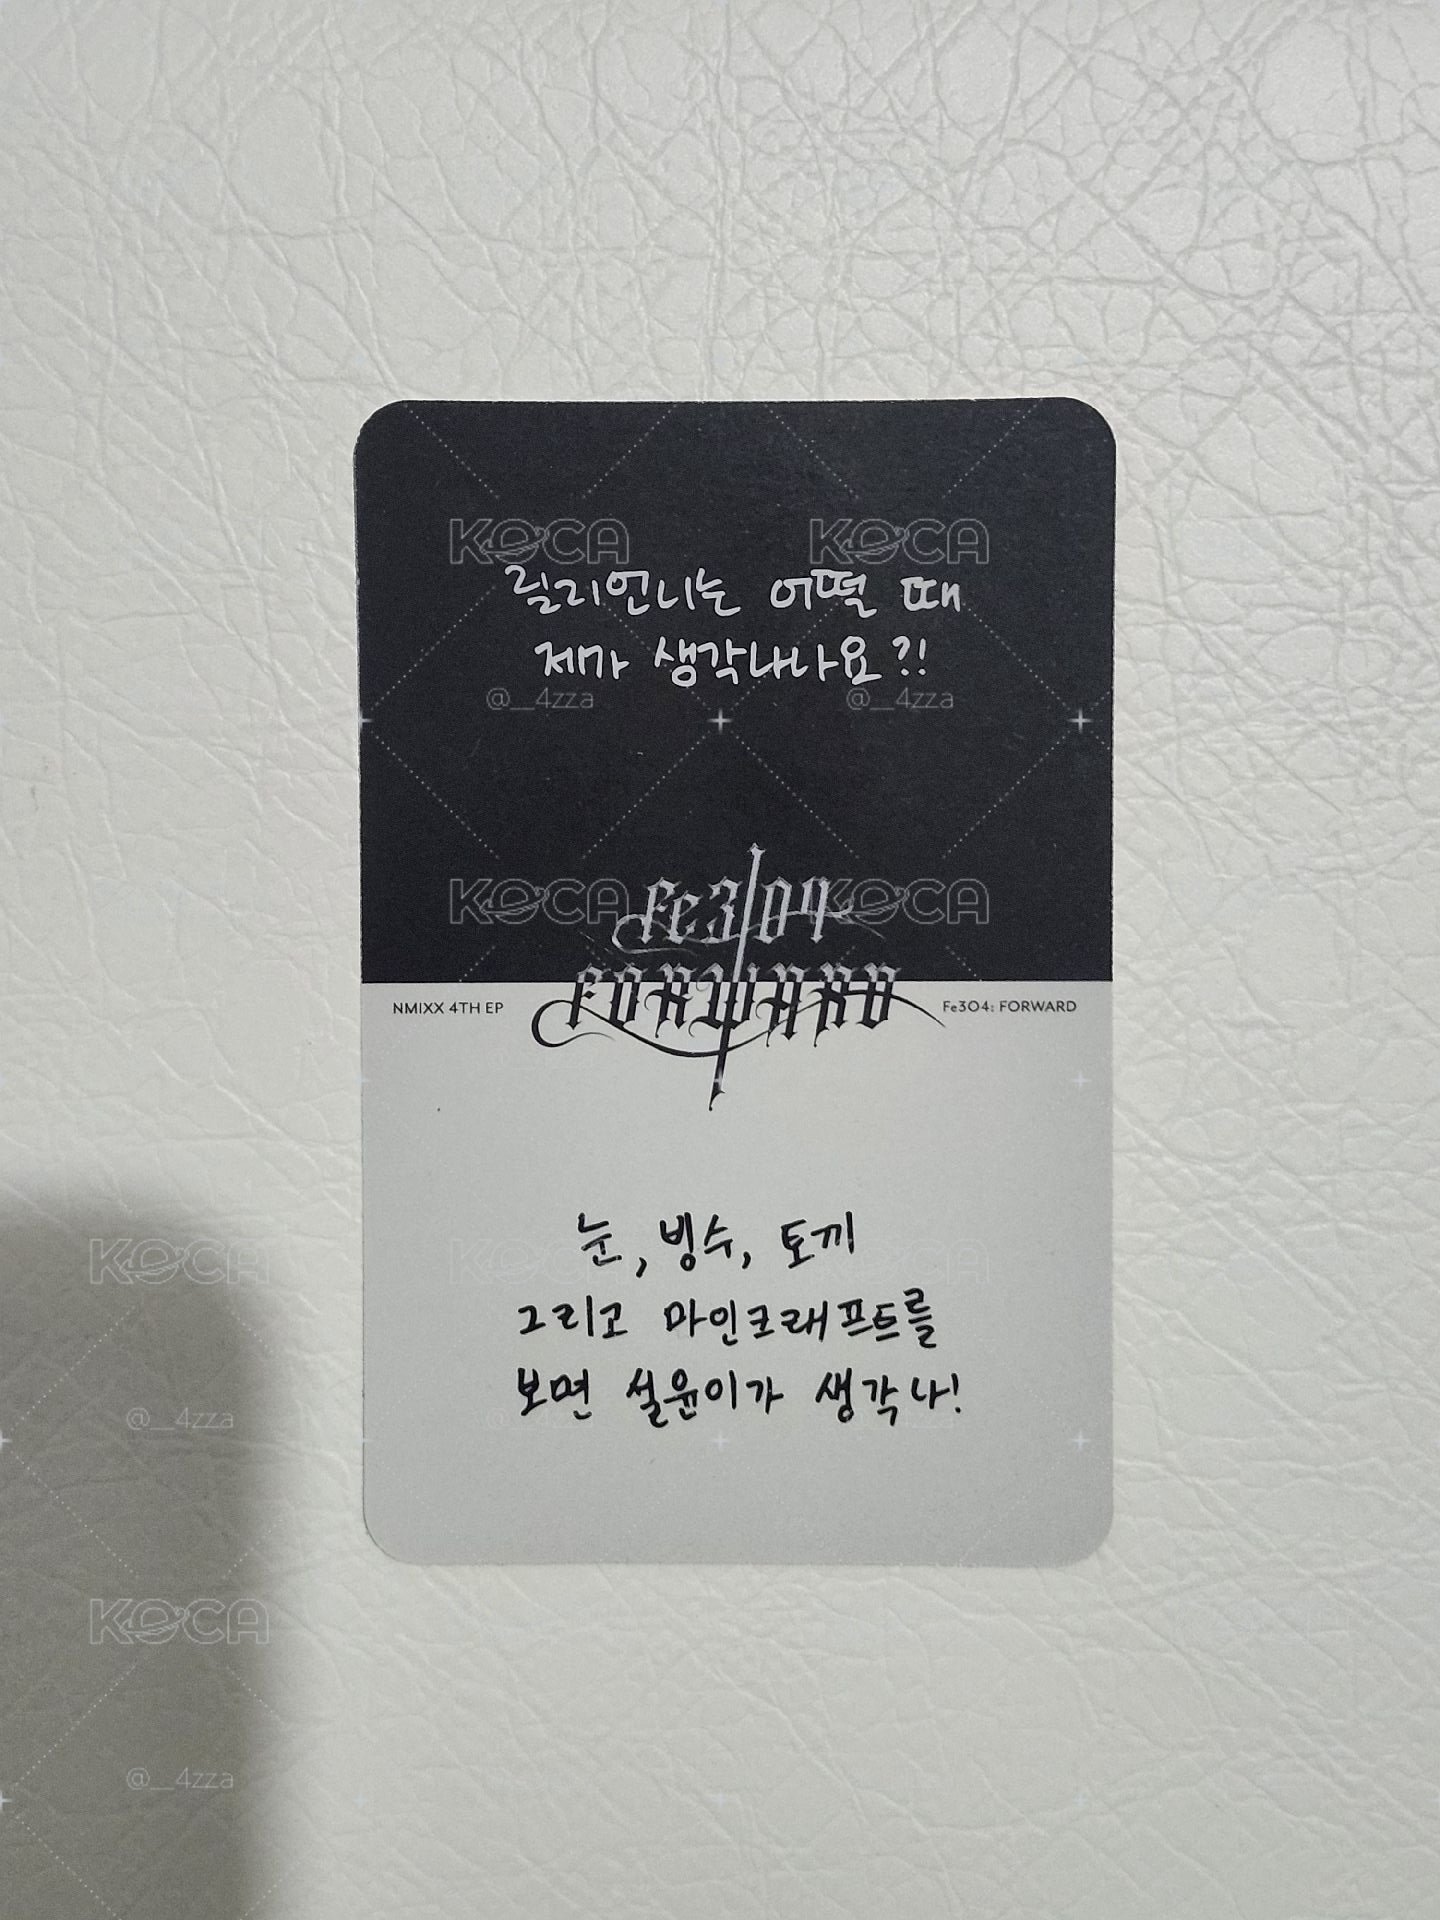 릴리언니는 어떨 때
제가 생각나나요?!
Fe3O4
FORWARD
NMIXX 4TH EP
Fe3O4: FORWARD
눈, 빙수, 토끼
그리고 마인크래프트를
보면 설윤이가 생각나!
KOCA KOCA
@__4zza @__4zza
KOCA KOCA
KOCA KOCA KOCA
@__4zza @__4zza @__4zza
KOCA
@__4zza